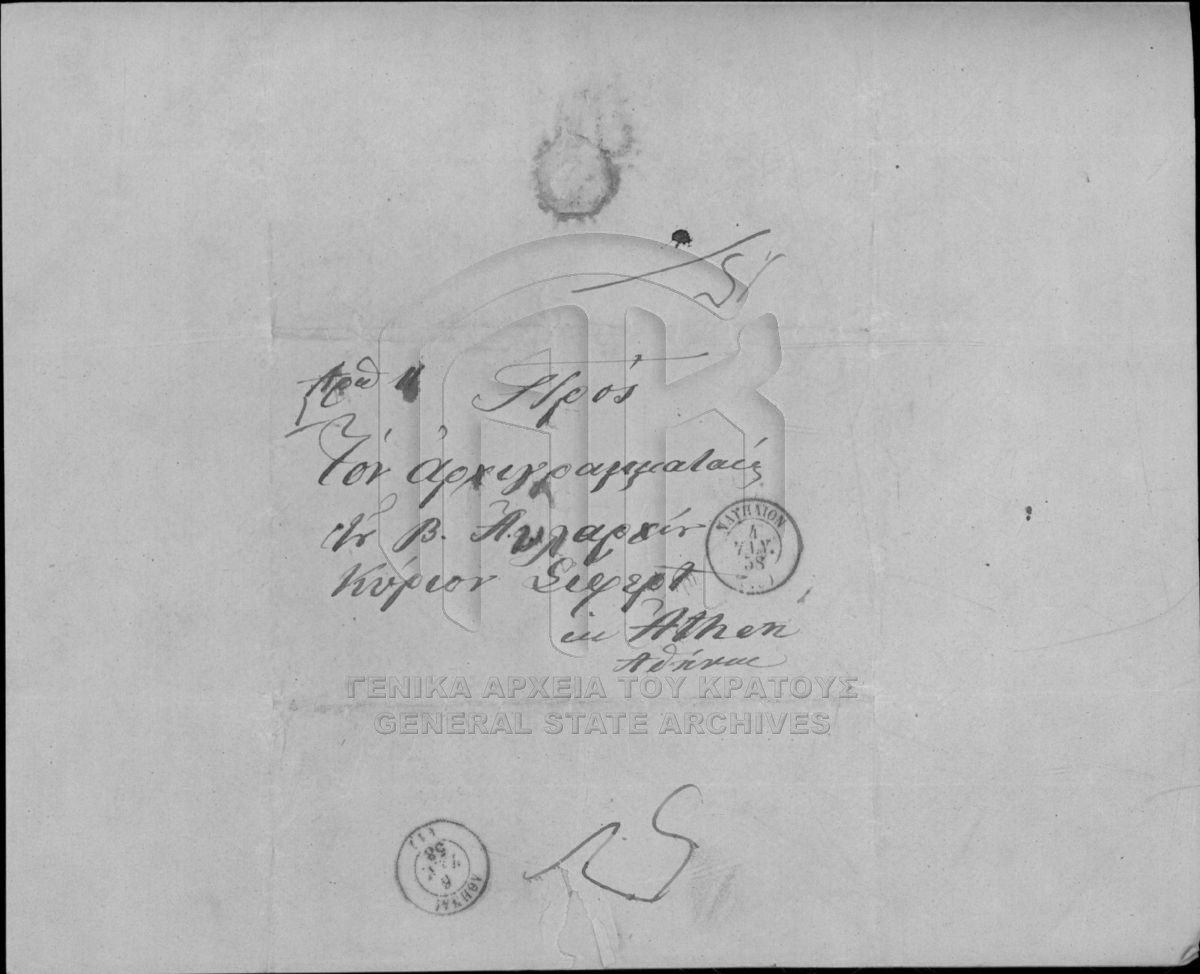 Αριθ
Πρός
Τόν ἀρχιγραμματαίς
τῆς Β. Αυλαρχίν
Κύριον Σιφερτ
in Athen
Αθήναι
ΝΑΥΠΛΙΟΝ
4
ΙΑΝ.
58
ΓΕΝΙΚΑ ΑΡΧΕΙΑ ΤΟΥ ΚΡΑΤΟΥΣ
GENERAL STATE ARCHIVES
ΑΘΗΝΑΙ
6
ΙΑΝ
58